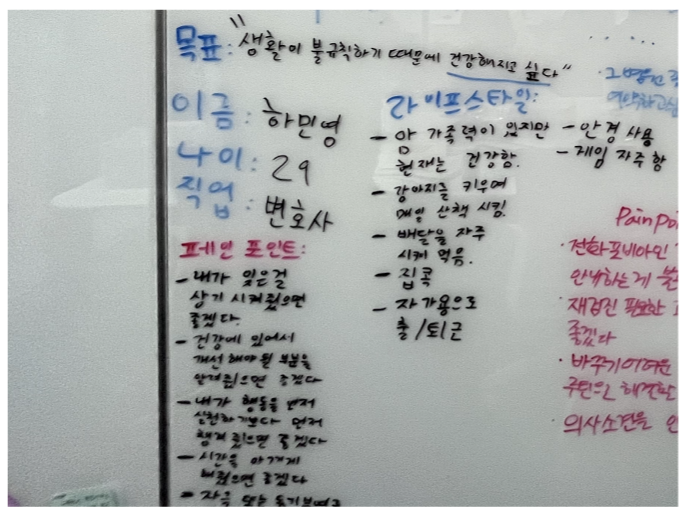 목표: "생활이 불규칙하기 때문에 건강해지고 싶다"
이름: 하민영
나이: 29
직업: 변호사
페인 포인트:
- 내가 잊은걸
상기 시켜줬으면
좋겠다.
- 건강에 있어서
개선해야 될 부분을
알려줬으면 좋겠다
- 내가 행동을 먼저
실천하기보다 먼저
챙겨줬으면 좋겠다
- 시간을 아끼게
해줬으면 좋겠다
라이프스타일:
- 암 가족력이 있지만
현재는 건강함.
- 강아지를 키우며
매일 산책 시킴.
- 배달을 자주
시켜 먹음.
- 집콕
- 자가용으로
출/퇴근
- 안경 사용
- 게임 자주 함
Pain Poi
· 전화포비아인
안내하는게
재검진 필요한
좋겠다
· 바꾸기 어려운
· 의사소견을